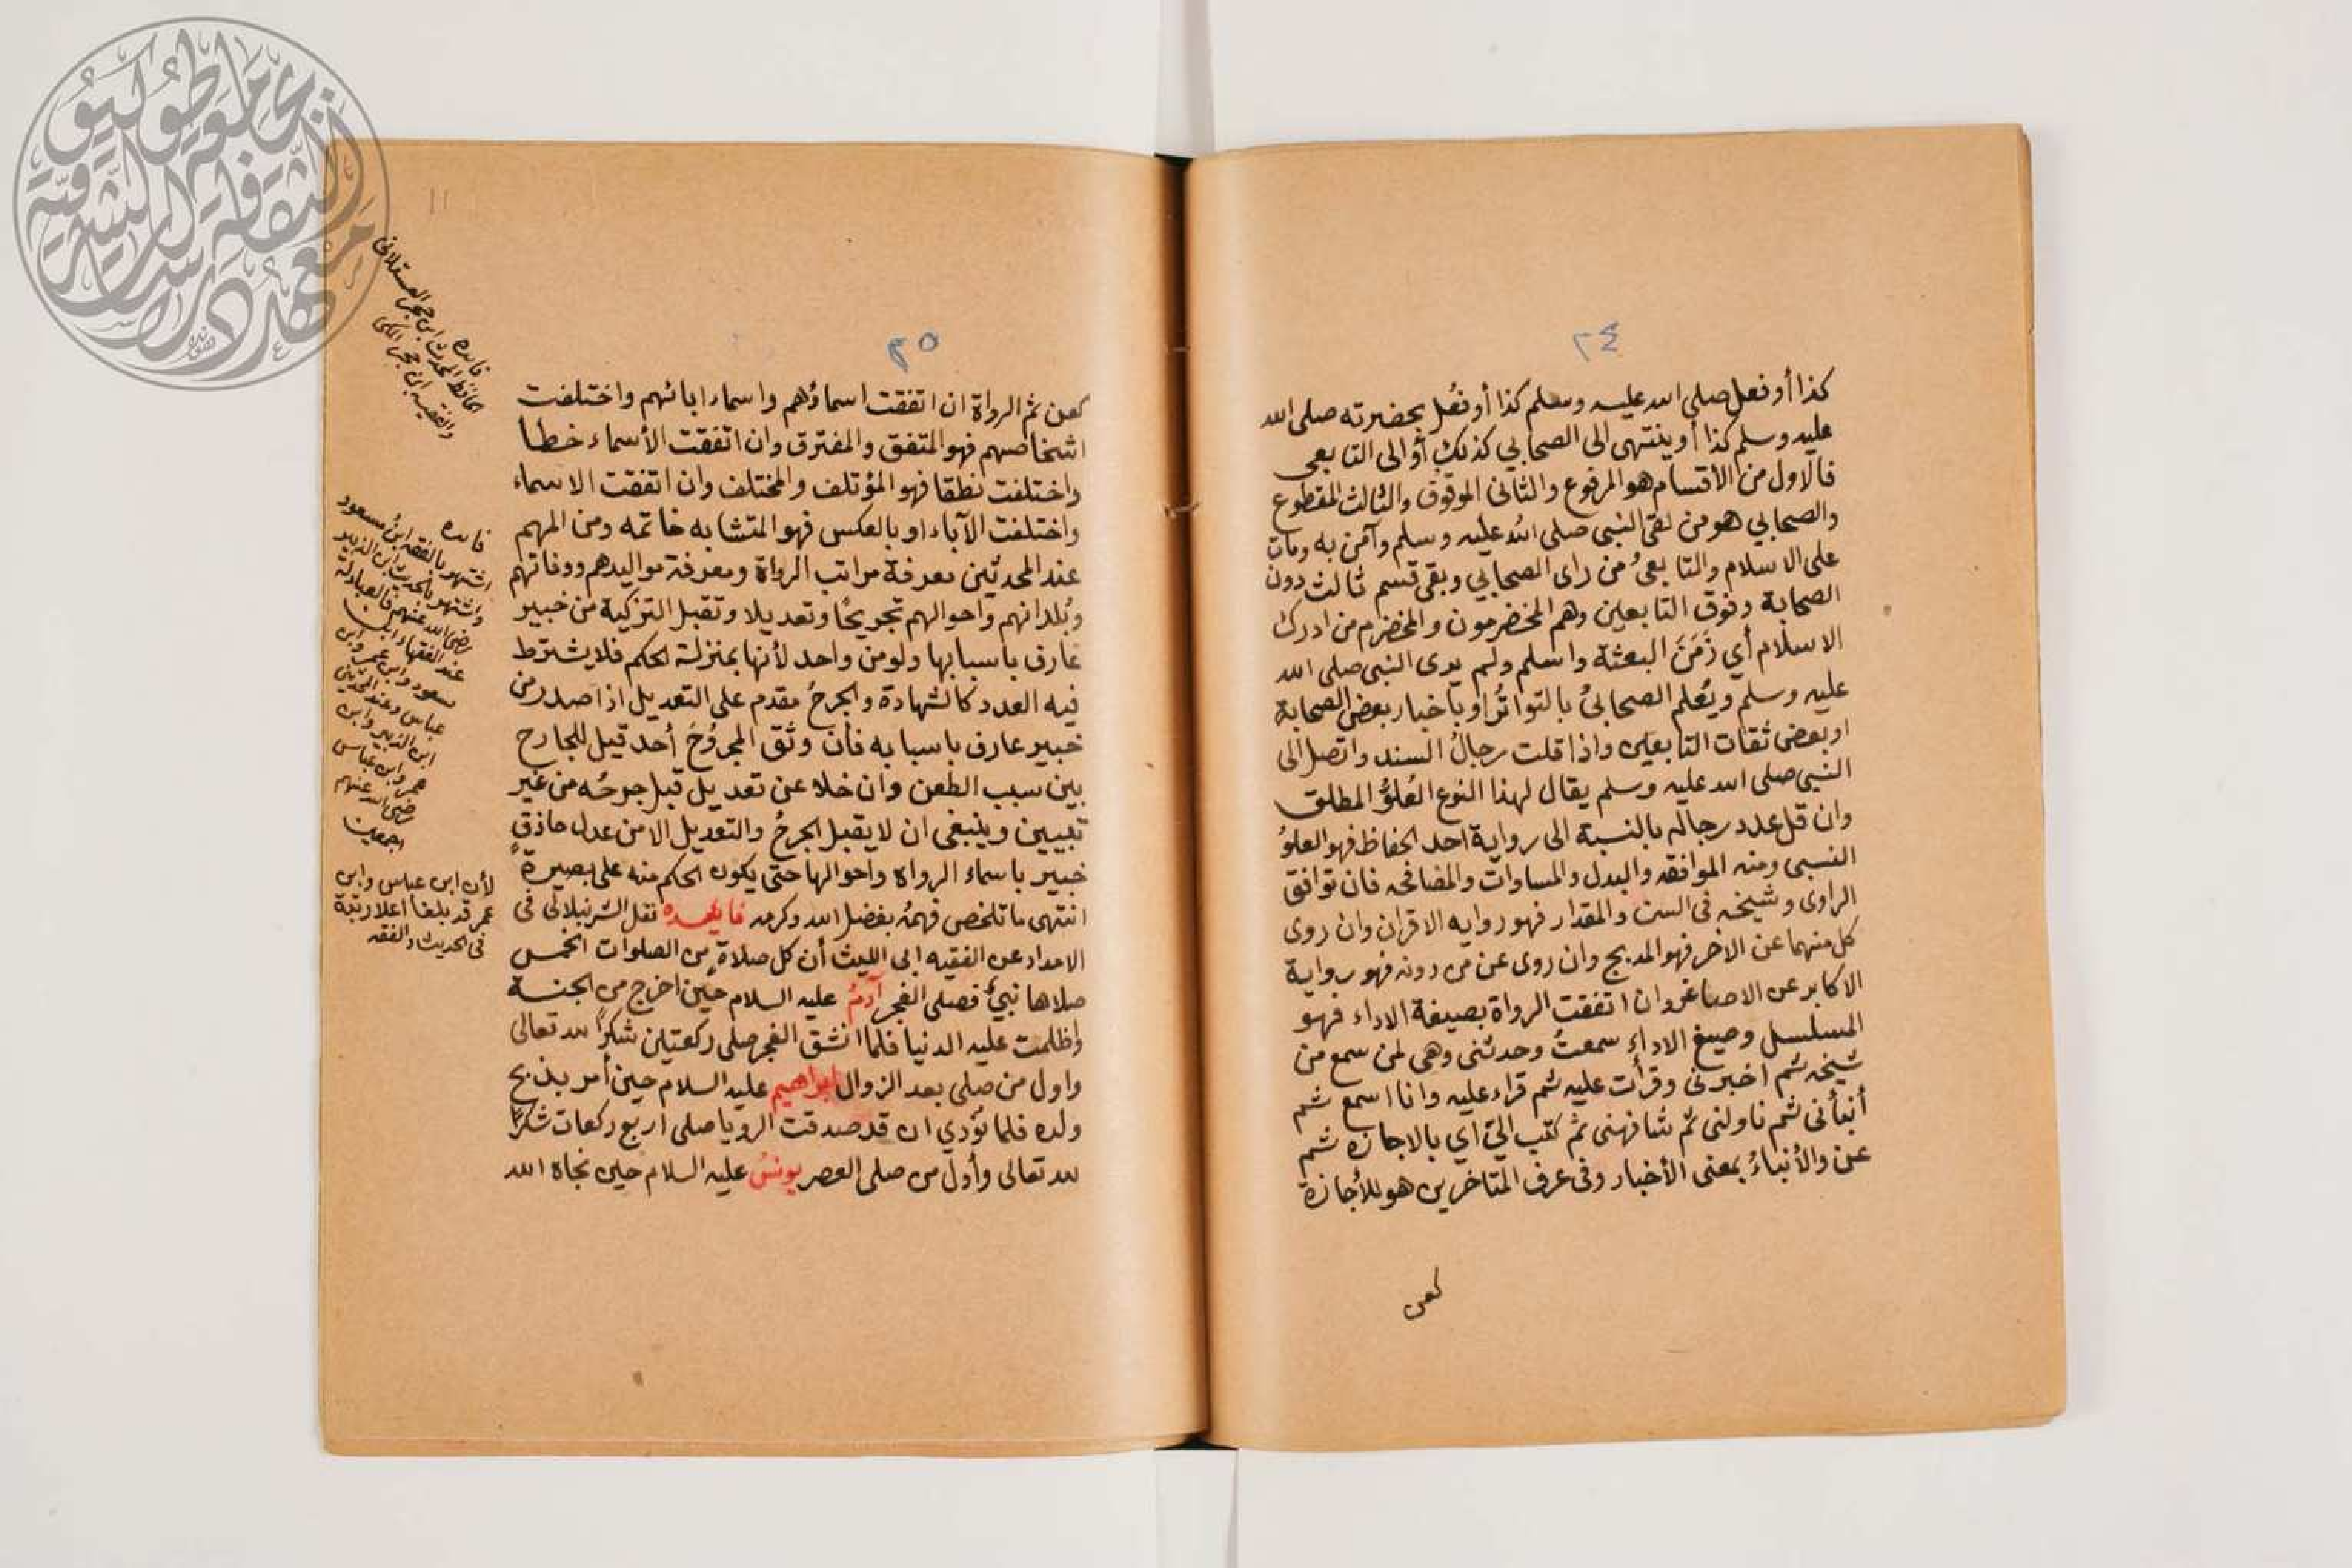 ٢٤
كذا أو فعل صلى الله عليه وسلم كذا أو فُعل بحضرته صلى الله
عليه وسلم كذا أو ينتهي الى الصحابي كذلك أو الى التابعي
فالاول من الأقسام هو المرفوع والثاني الموقوف والثالث المقطوع
والصحابي هو من لقى النبي صلى الله عليه وسلم وآمن به ومات
على الاسلام والتابعيُ من راى الصحابي وبقى قسم ثالث دون
الصحابة وفوق التابعين وهم المخضرمون والمخضرم من ادرك
الاسلام أي زَمَنَ البعثة واسلم ولم يرى النبي صلى الله
عليه وسلم ويُعلم الصحابيُ بالتواتُر او باخبار بعض الصحابة
او بعض ثقات التابعين واذا قلت رجالُ السند واتصل الى
النبي صلى الله عليه وسلم يقال لهذا النوع العُلوُّ المطلق
وان قل عدد رجاله بالنسبة الى رواية احد الحفاظ فهو العلوُ
النسبي ومنه الموافقه والبدل والمساوات والمصافحه فان توافق
الراوى وشيخه فى السن والمقدار فهو روايه الاقران وان روى
كل منهما عن الاخر فهو المدبج وان روى عن من دونه فهو رواية
الاكابر عن الاصاغر وان اتفقت الرواة بصيغة الاداء فهو
المسلسل وصيغ الاداء سمعتُ وحدثنى وهى لمن سمع من
شيخه ثم اخبرنى وقرأت عليه ثم قراء عليه وانا اسمع ثم
أنبأنى ثم ناولنى ثم شافهنى ثم كتب الىّ اي بالاجازه ثم
عن والأنباءُ بمعنى الأخبار وفى عرف المتاخرين هو للأجازة
كعن
١١
٢٥
كعن ثم الرواة ان اتفقت اسماؤهم واسماء ابائهم واختلفت
اشخاصهم فهو المتفق والمفترق وان اتفقت الأسماء خطا
واختلفت نطقا فهو المؤتلف والمختلف وان اتفقت الاسماء
واختلفت الآباء او بالعكس فهو المتشابه خاتمه ومن المهم
عند المحدثين معرفة مراتب الرواة ومعرفة مواليدهم ووفاتهم
وبُلدانهم واحوالهم تجريحًا وتعديلا وتقبل التزكية من خبير
عارف باسبابها ولو من واحد لأنها بمنزلة الحكم فلا يشترط
فيه العدد كالشهادة والجرحُ مقدم على التعديل اذا صدر من
خبير عارف باسبابه فأن وثق المجرُوحَ أحد قيل للجارح
بين سبب الطعن وان خلا عن تعديل قبل جرحُه من غير
تبيين وينبغى ان لا يقبل الجرحُ والتعديل الا من عدل حاذقٍ
خبير باسماء الرواه واحوالها حتى يكون الحكم منه على بصيرة
انتهى ما تلخص فهمُه بفضل الله وكرمه فايده نقل الشرنبلالى فى
الامداد عن الفقيه ابى الليث أن كل صلاة من الصلوات الخمس
صلاها نبيٌ فصلى الفجر آدمُ عليه السلام حين اخرج من الجنة
واظلمت عليه الدنيا فلما انشق الفجر صلى ركعتين شكرًا لله تعالى
واول من صلى بعد الزوال ابراهيم عليه السلام حين أمر بذبح
ولده فلما نُودي ان قد صدقت الرويا صلى اربع ركعات شكرًا
لله تعالى وأول من صلى العصر يونسُ عليه السلام حين نجاه الله
فايده
الحافظ المحدث ابن حجر العسقلانى
والفقيه ابن حجر المكى
فايده
اشتهر بالفقه ابنُ مسعود
واشتهر بالحديث ابن الزبير
رضى الله عنهم فالعبادله
عند الفقهاء ابن
مسعود وابن عمر وابن
عباس وعند المحدثين
ابن الزبير وابن
عمر وابن عباس
رضى الله عنهم
اجمعين
لأن ابن عباس وابن
عمر قد بلغا اعلا رتبة
فى الحديث والفقه